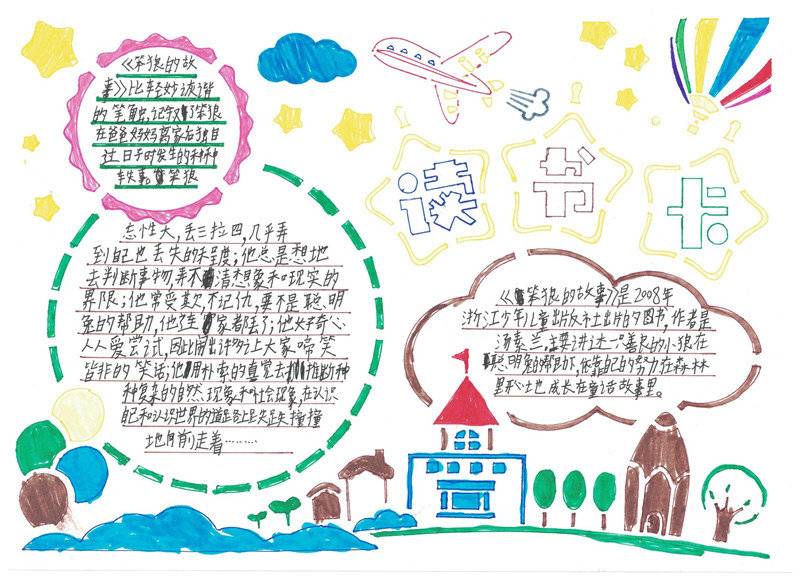 读书卡
《笨狼的故
事》以轻妙诙谐
的笔触,记叙了笨狼
在爸爸妈妈离家后独自
过日子时发生的种种
轶事。笨狼
忘性大,丢三拉四,几乎弄
到自己也丢失的程度;他总是想地
去判断事物,弄不清想象和现实的
界限;他常受欺不记仇,要不是聪明
兔的帮助,他连家都丢了;他好奇心
人人爱尝试,因此闹出许多让大家啼笑
皆非的笑话;他用朴素的直觉去推断种
种复杂的自然现象和社会现象,在认识
自己和认识世界的道路上跌跌撞撞
地向前走着………
《笨狼的故事》是2008年
浙江少年儿童出版社出版的图书,作者是
汤素兰,主要讲述一善良的小狼在
聪明兔的帮助下,依靠自己的努力在森林
里开心地成长在童话故事里。